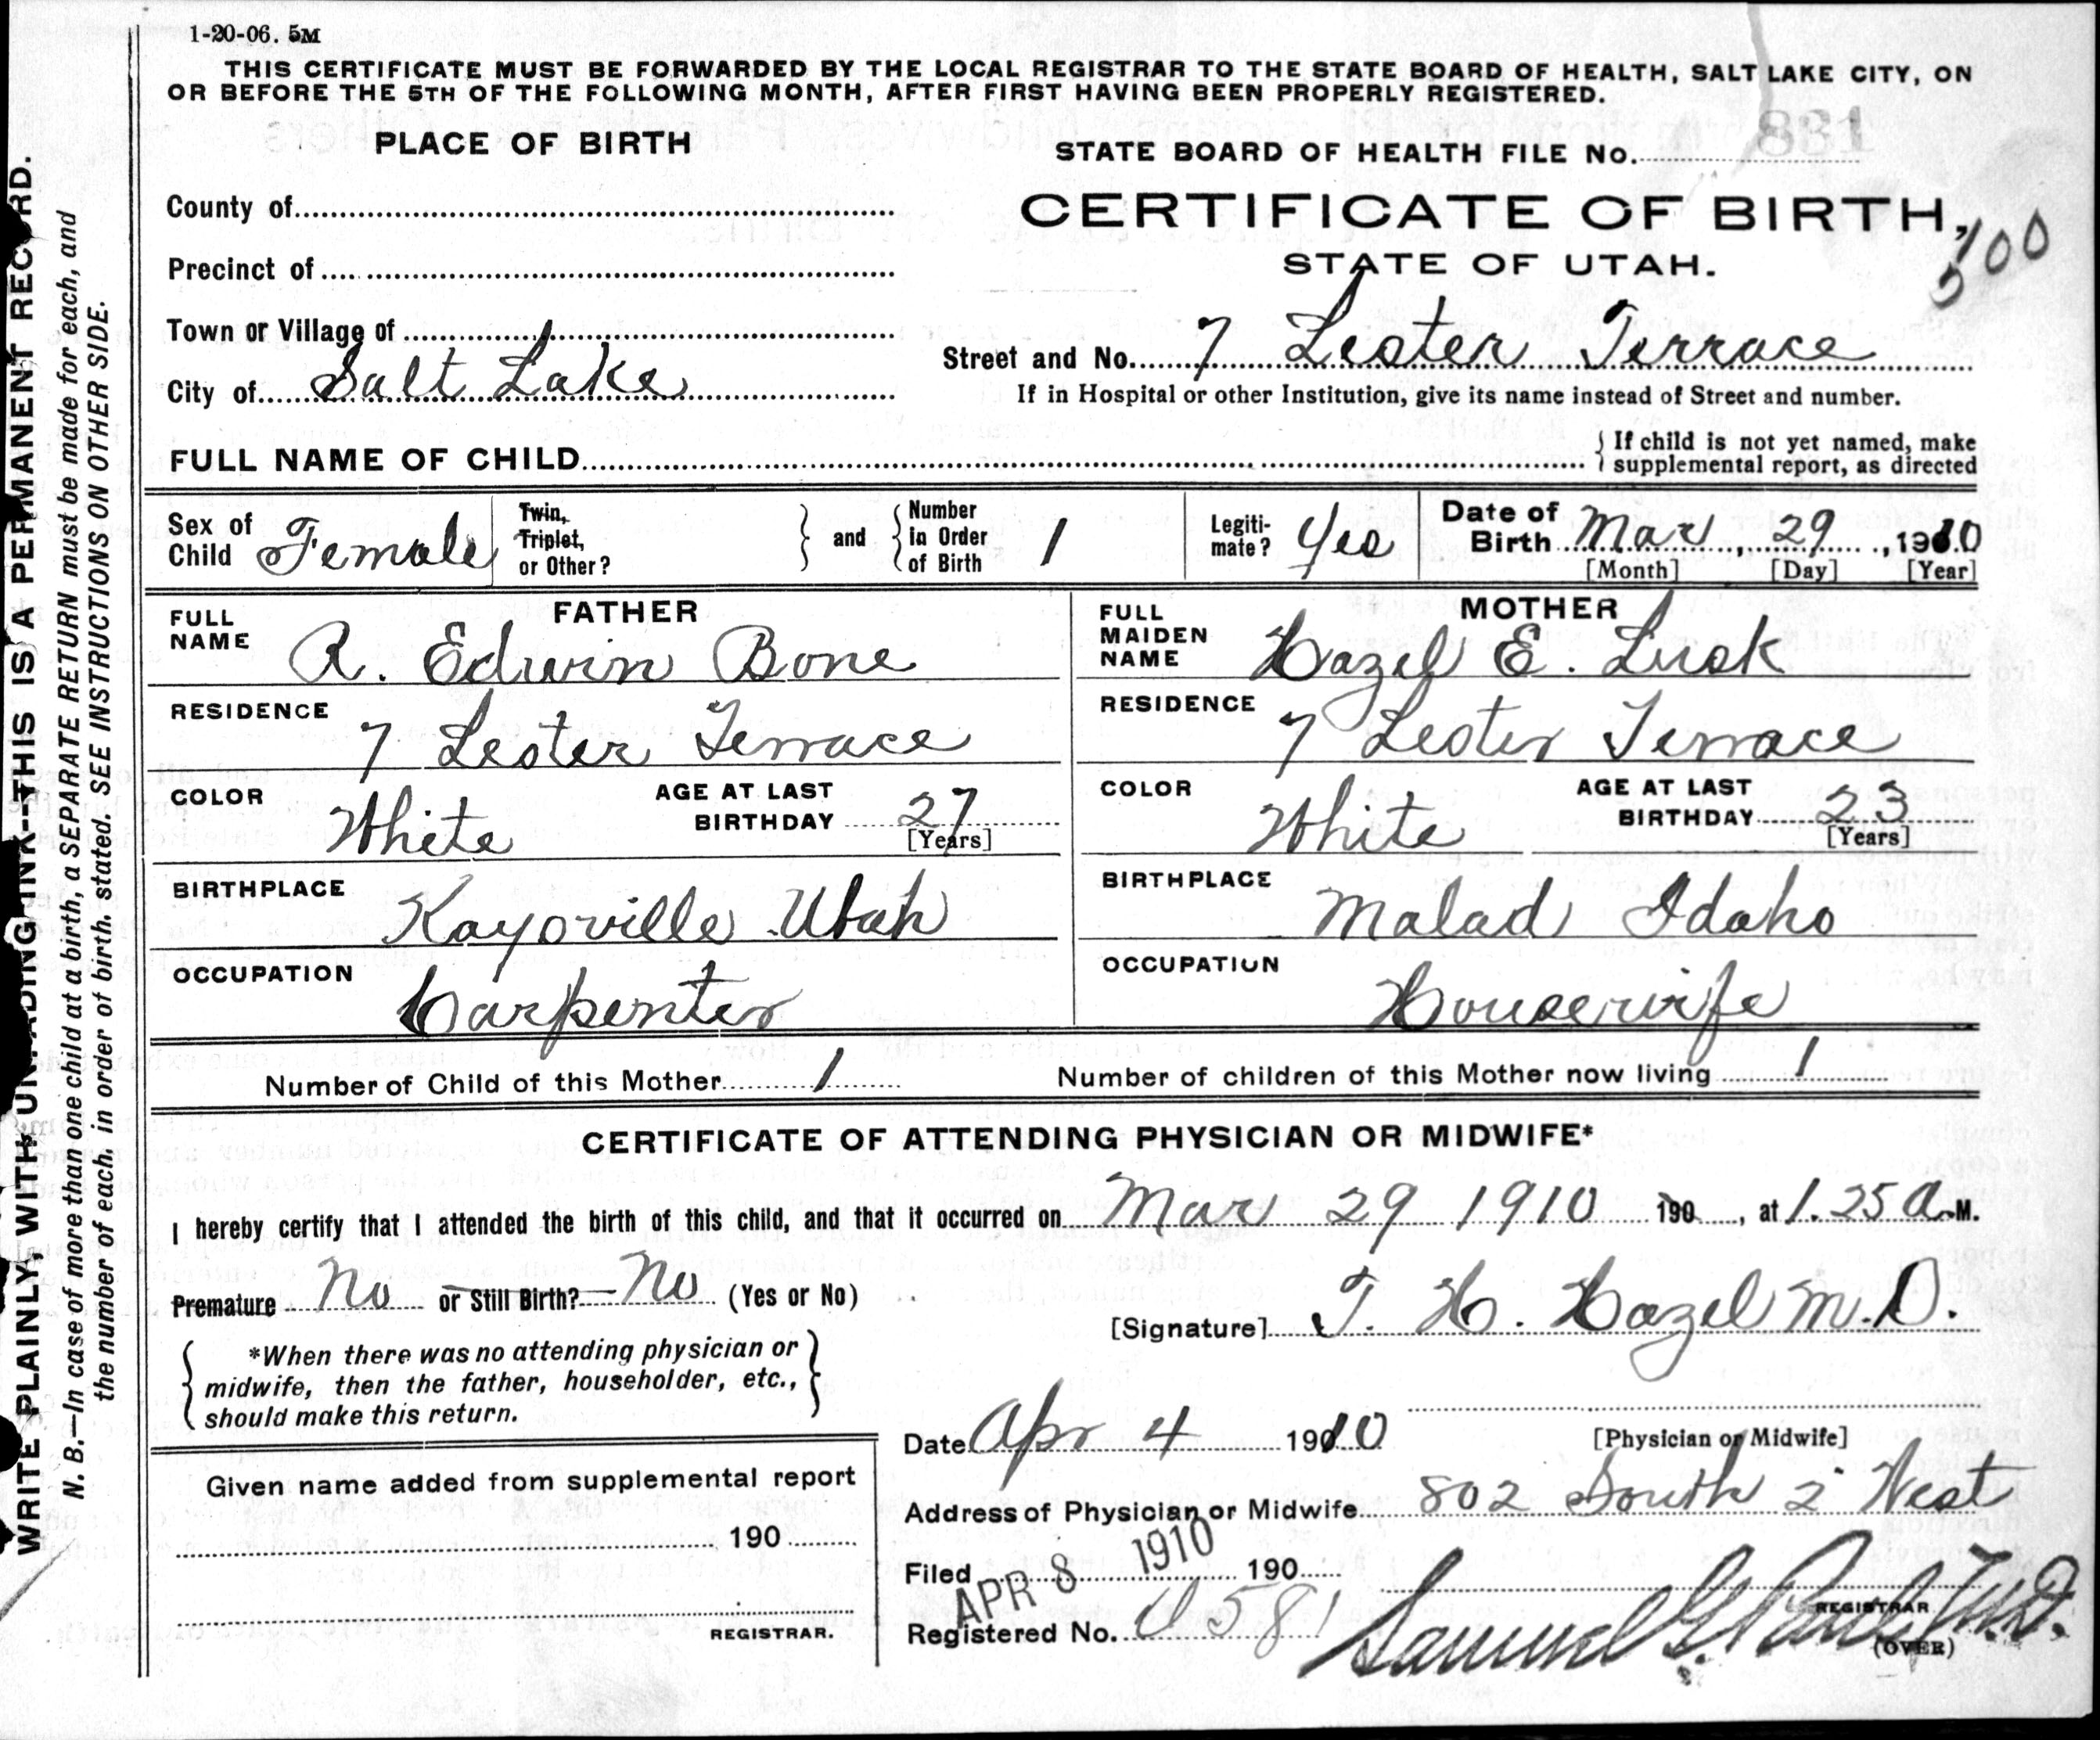 1-20-06. 5M
THIS CERTIFICATE MUST BE FORWARDED BY THE LOCAL REGISTRAR TO THE STATE BOARD OF HEALTH, SALT LAKE CITY, ON
OR BEFORE THE 5TH OF THE FOLLOWING MONTH, AFTER FIRST HAVING BEEN PROPERLY REGISTERED.
WRITE PLAINLY, WITH UNFADING INK—THIS IS A PERMANENT RECORD.
N. B.—In case of more than one child at a birth, a SEPARATE RETURN must be made for each, and
the number of each, in order of birth, stated. SEE INSTRUCTIONS ON OTHER SIDE.
PLACE OF BIRTH
STATE BOARD OF HEALTH FILE No. 831
County of
CERTIFICATE OF BIRTH,
STATE OF UTAH.
500
Precinct of
Town or Village of
City of Salt Lake
Street and No. 7 Lester Terrace
If in Hospital or other Institution, give its name instead of Street and number.
FULL NAME OF CHILD
{ If child is not yet named, make
supplemental report, as directed
Sex of Child Female
Twin, Triplet, or Other?
} and { Number In Order of Birth 1
Legiti-mate? Yes
Date of Birth Mar, 29, 1910
[Month] [Day] [Year]
FATHER
FULL NAME A. Edwin Bone
RESIDENCE 7 Lester Terrace
COLOR White
AGE AT LAST BIRTHDAY 27
[Years]
BIRTHPLACE Kaysville Utah
OCCUPATION Carpenter
MOTHER
FULL MAIDEN NAME Hazel E. Lusk
RESIDENCE 7 Lester Terrace
COLOR White
AGE AT LAST BIRTHDAY 23
[Years]
BIRTHPLACE Malad Idaho
OCCUPATION Housewife
Number of Child of this Mother 1
Number of children of this Mother now living 1
CERTIFICATE OF ATTENDING PHYSICIAN OR MIDWIFE*
I hereby certify that I attended the birth of this child, and that it occurred on Mar 29 1910 190, at 1.25 A.M.
Premature No or Still Birth? No (Yes or No)
[Signature] T. H. Hazel M.D.
{ *When there was no attending physician or
midwife, then the father, householder, etc.,
should make this return. }
Date Apr 4 1910
[Physician or Midwife]
Given name added from supplemental report
190
REGISTRAR.
Address of Physician or Midwife 802 South 2 West
Filed APR 8 1910 190
Registered No. 581
Samuel G. Paul M.D.
REGISTRAR
(OVER)